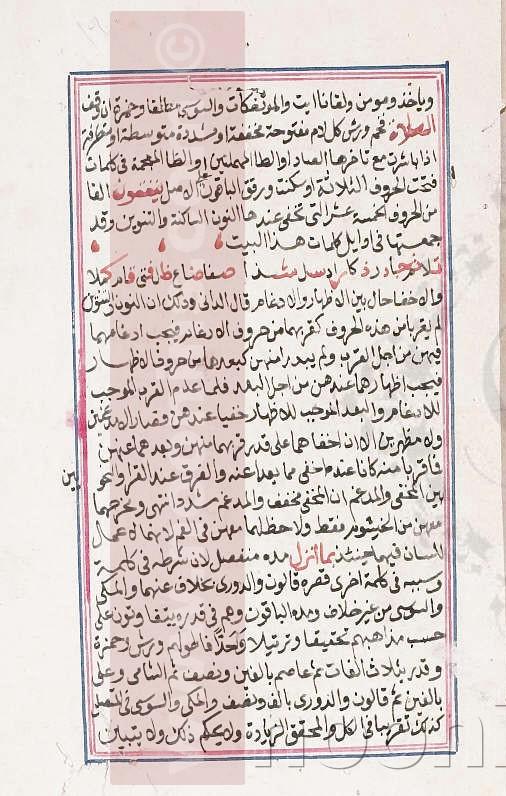 وياخذ ومومن ولقاناايت والموتفكات والسوسي مطلقا وحمزة ان وقف
الصلاة فخم ورش كل لام مفتوحة مخففة او مشددة متوسطة او متطرفة
اذا باشرت مع تاخرها الصاد او الطا المهملتين او الظا المعجمة في كلمات
فتحت الحروف الثلاثة او سكنت ورقق الباقون على الاصل ينفقون الفا
من الحروف الخمسة عشر التي تخفى عندها النون الساكنة والتنوين وقد
جمعتها في اوايل كلمات هذا البيت
تلا ثم جا در ذكا زاد سل شذا صفا ضاع طاب ظل فتى قام كملا
والاخفا حال بين الاظهار والادغام قال الداني وذلك ان النون والتنوين
لم يقربا من هذه الحروف كقربهما من حروف الادغام فيجب ادغامهما
فيهن من اجل القرب ولم يبعدا منهن كبعدهما من حروف الاظهار
فيجب اظهارهما عندهن من اجل البعد فلما عدم القرب الموجب
للادغام والبعد الموجب للاظهار خفيا عندهن فصارا لا مدغمين
ولا مظهرين الا ان اخفاهما على قدر قربهما منهن وبعدهما عنهن
فما قربا منه كانا عنده اخفى مما بعدا عنه والفرق عند القرا والنحو
يين
بين المخفى والمدغم ان المخفى مخفف والمدغم مشدد انتهى ومخرجهما
معهن من الخيشوم فقط ولا حظ لهما معهن في الفم لانه لا عمل
للسان فيهما حينئذ بما انزل مده منفصل لان شرطه في كلمة
وسببه في كلمة اخرى فقصره قالون والدوري بخلاف عنهما والمكي
والسوسي من غير خلاف ومده الباقون وهم في قدره متفاوتون على
حسب مذاهبهم تحقيقا وترتيلا وحدرا فاطولهم ورش وحمزة
وقدر بثلاث الفات ثم عاصم بالفين ونصف ثم الشامي وعلى
بالفين ثم قالون والدوري بالف ونصف والمكي والسوسي في المتصل
كذلك تقريبا في الكل والمحقق الزيادة ولا يحكم ذلك ولا يتبين